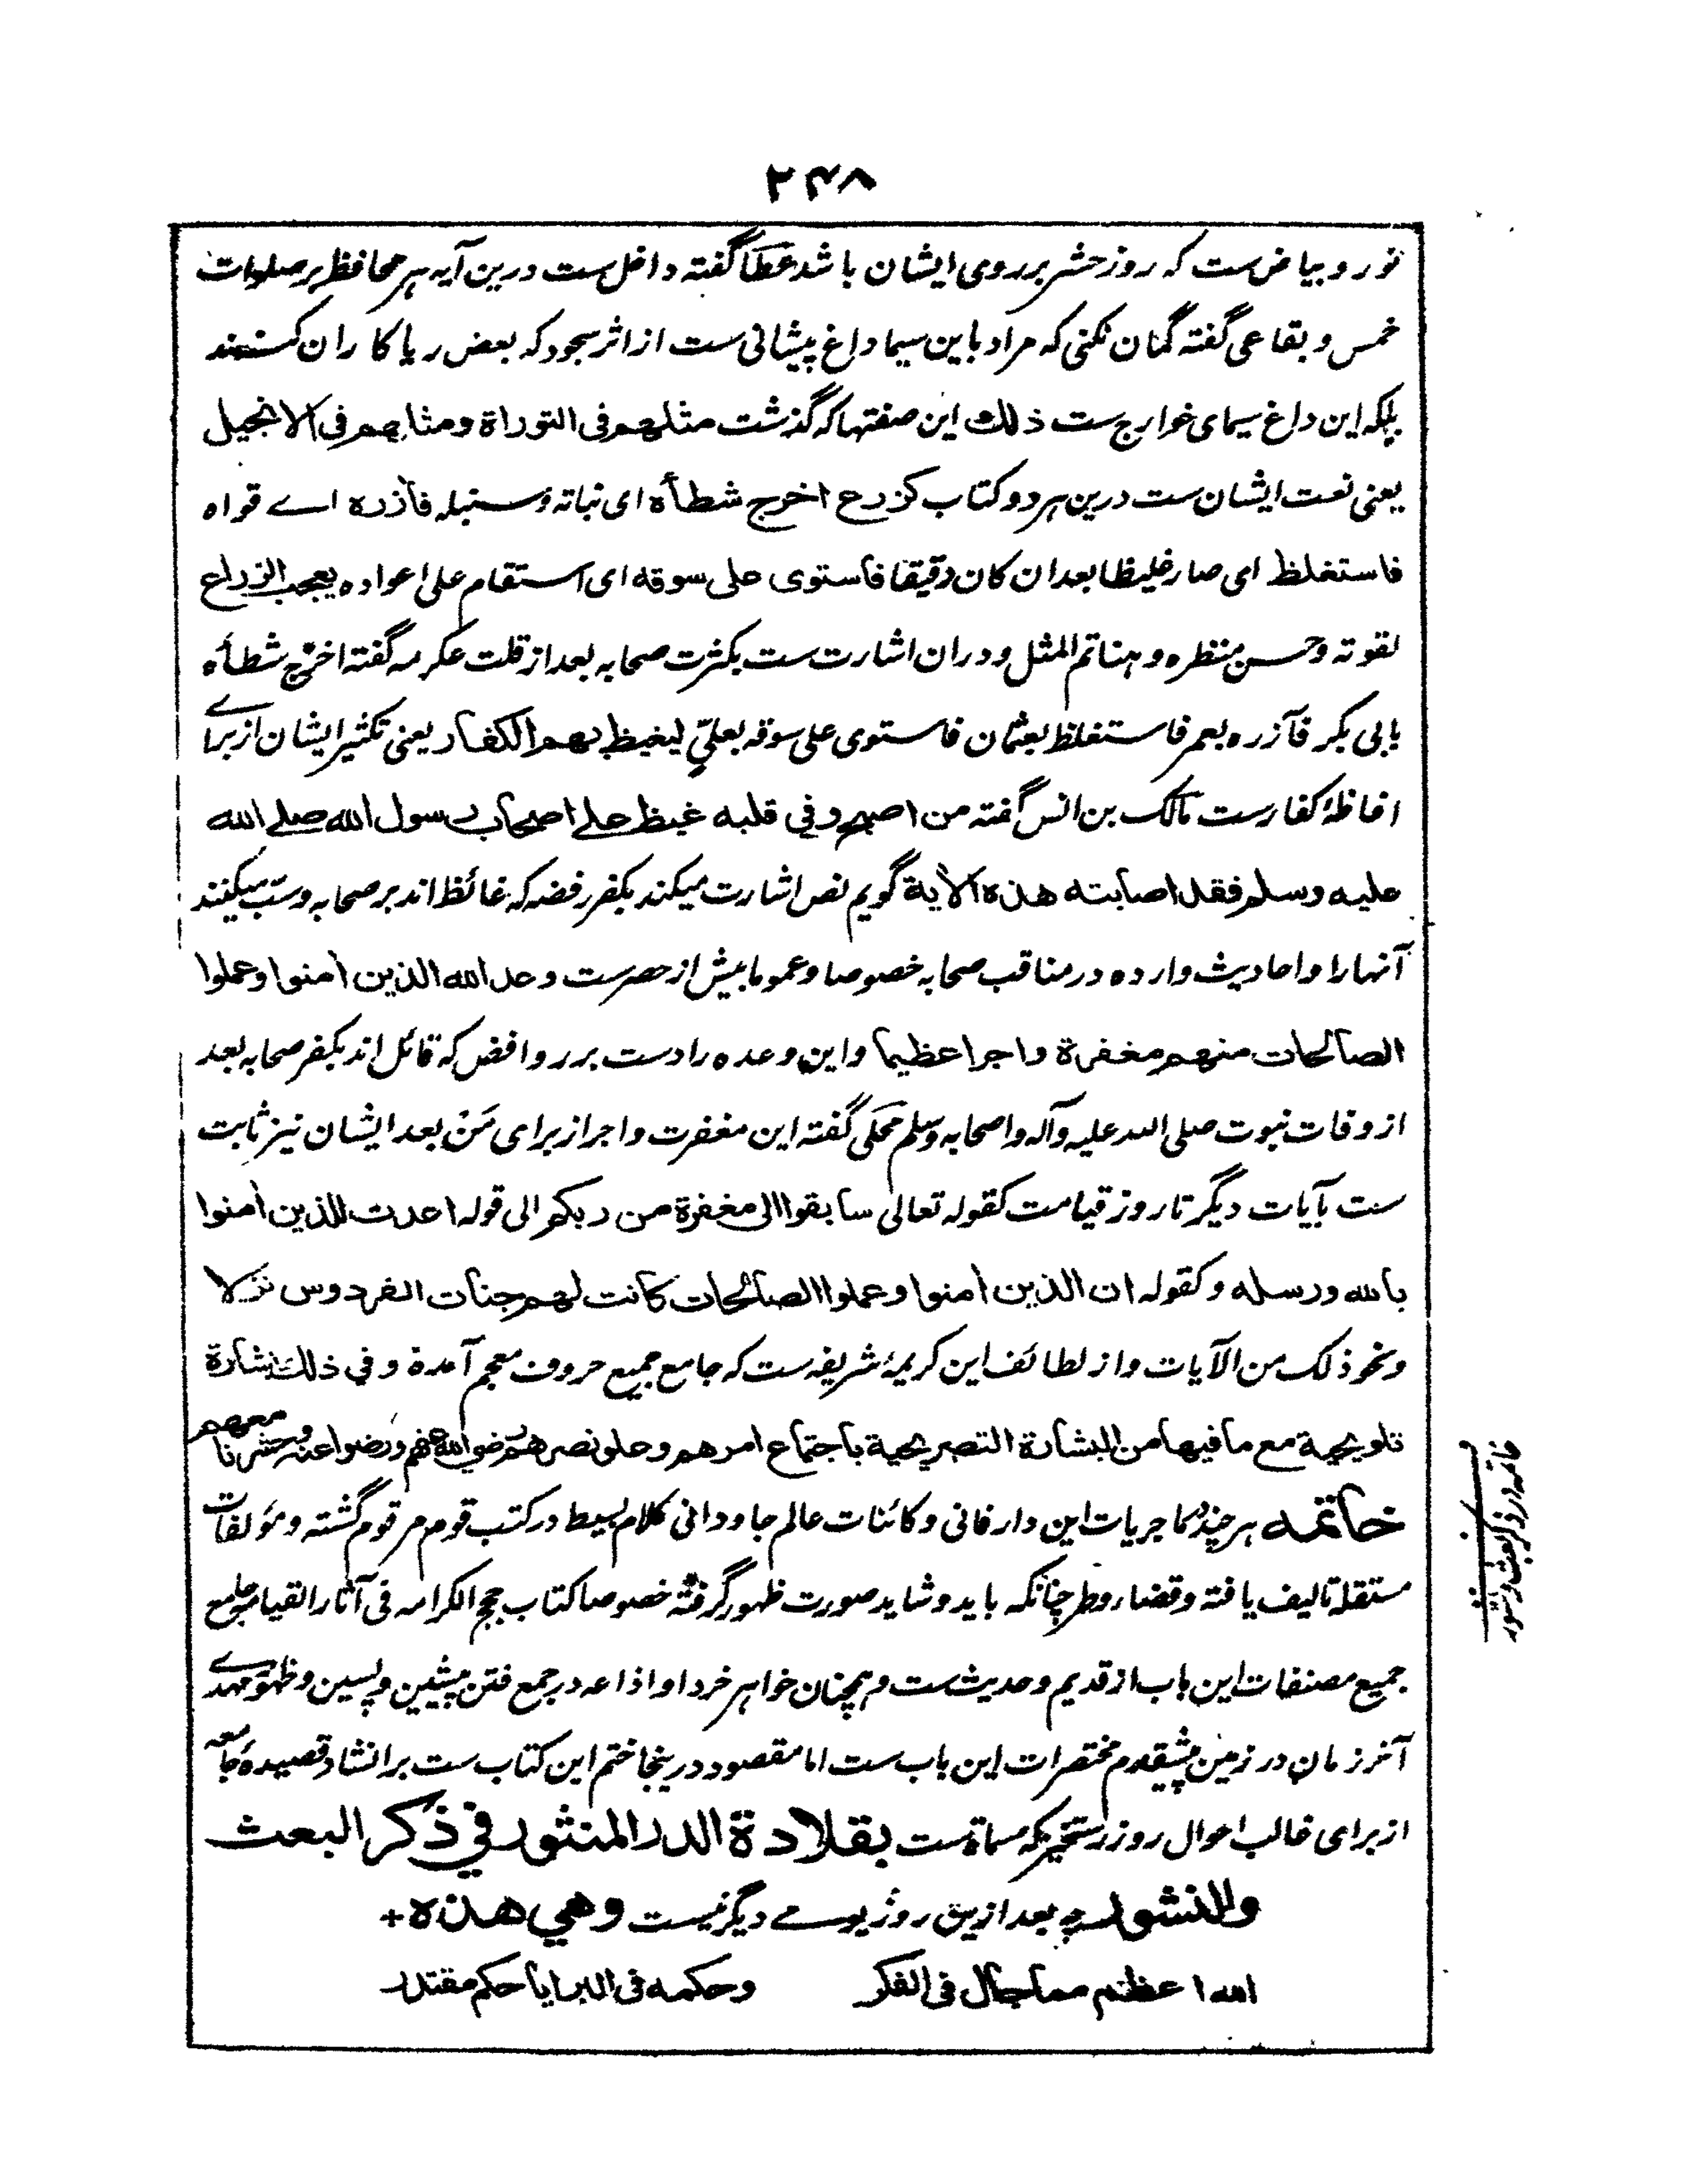 ۲۴۸
نور و بیاض ست که روز حشر بر روی ایشان باشد عطا گفته داخل ست درین آیه هر محافظ بر صلوات
خمس و بقاعی گفته گمان نکنی که مراد باین سیما داغ پیشانی ست از اثر سجود که بعض ریا کاران کنند
بلکه این داغ سیمای خوارج ست ذلك این صفتها که گذشت مثلهم فی التوراة ومثلهم فی الانجیل
یعنی نعت ایشان ست درین هر دو کتاب کزرع اخرج شطأه ای نباته و سنبله فآزره اے قواه
فاستغلظ ای صار غلیظا بعد ان کان دقیقا فاستوی علی سوقه ای استقام علی اعواده یعجب الزراع
لقوته وحسن منظره و هنا تم المثل و دران اشارت ست بکثرت صحابه بعد از قلت عکرمه گفته اخرج شطأه
بابی بکر فآزره بعمر فاستغلظ بعثمان فاستوی علی سوقه بعلیٍّ لیغیظ بهم الکفار یعنی تکثیر ایشان از براے
اغاظهٔ کفار ست مالک بن انس گفته من اصبح وفی قلبه غیظ علے اصحاب رسول الله صلے الله
علیه وسلم فقد اصابته هذه الآیة گویم نص اشارت میکند بکفر رفضه که غائظ اند بر صحابه و سبّ میکنند
آنها را و احادیث وارده در مناقب صحابه خصوصا و عموما بیش از حصر ست وعد الله الذین اٰمنوا وعملوا
الصالحات منهم مغفرة واجرا عظیما و این وعده را دست بر روافض که قائل اند بکفر صحابه بعد
از وفات نبوت صلی الله علیه وآله واصحابه وسلم محلی گفته این مغفرت و اجر از برای مَنْ بعد ایشان نیز ثابت
ست بآیات دیگر تا روز قیامت کقوله تعالی سابقوا الی مغفرة من ربکم الی قوله اعدت للذین اٰمنوا
بالله ورسله و کقوله ان الذین اٰمنوا وعملوا الصالحات کانت لهم جنات الفردوس نزلا
ونحو ذلک من الآیات و از لطائف این کریمهٔ شریفه ست که جامع جمیع حروف معجم آمده وفی ذلك بشارة
تلویحیة مع ما فیها من البشارة التصریحیة باجتماع امرهم وعلو نصرهم رضي الله عنهم ورضوا عنه وحشرنا معهم
خاتمه هر چند ماجریات این دار فانی و کائنات عالم جاودانی کلام بسیط در کتب قوم مرقوم گشته و مؤلفات
مستقله تالیف یافته و قضا وطر چنانکه باید و شاید صورت ظهور گرفته خصوصا کتاب حجج الکرامه فی آثار القیامه جامع
جمیع مصنفات این باب از قدیم و حدیث ست و همچنان خواهر خرد او اذاعه در جمع فتن پیشین و پسین و ظهور مهدے
آخر زمان در زمین پیشقدم مختصرات این باب ست اما مقصود درینجا ختم این کتاب ست بر انشاد قصیدهٔ جامعه
از برای غالب احوال روز رستخیز که مسماة ست بقلادة الدر المنثور في ذكر البعث
والنشور بعد ازین روز یومے دیگر نیست وهي هذه +
الله اعظم مما جال فی الفکر وحکمه فی البرایا حکم مقتدر
خاتمه در ذکر بعث و نشور